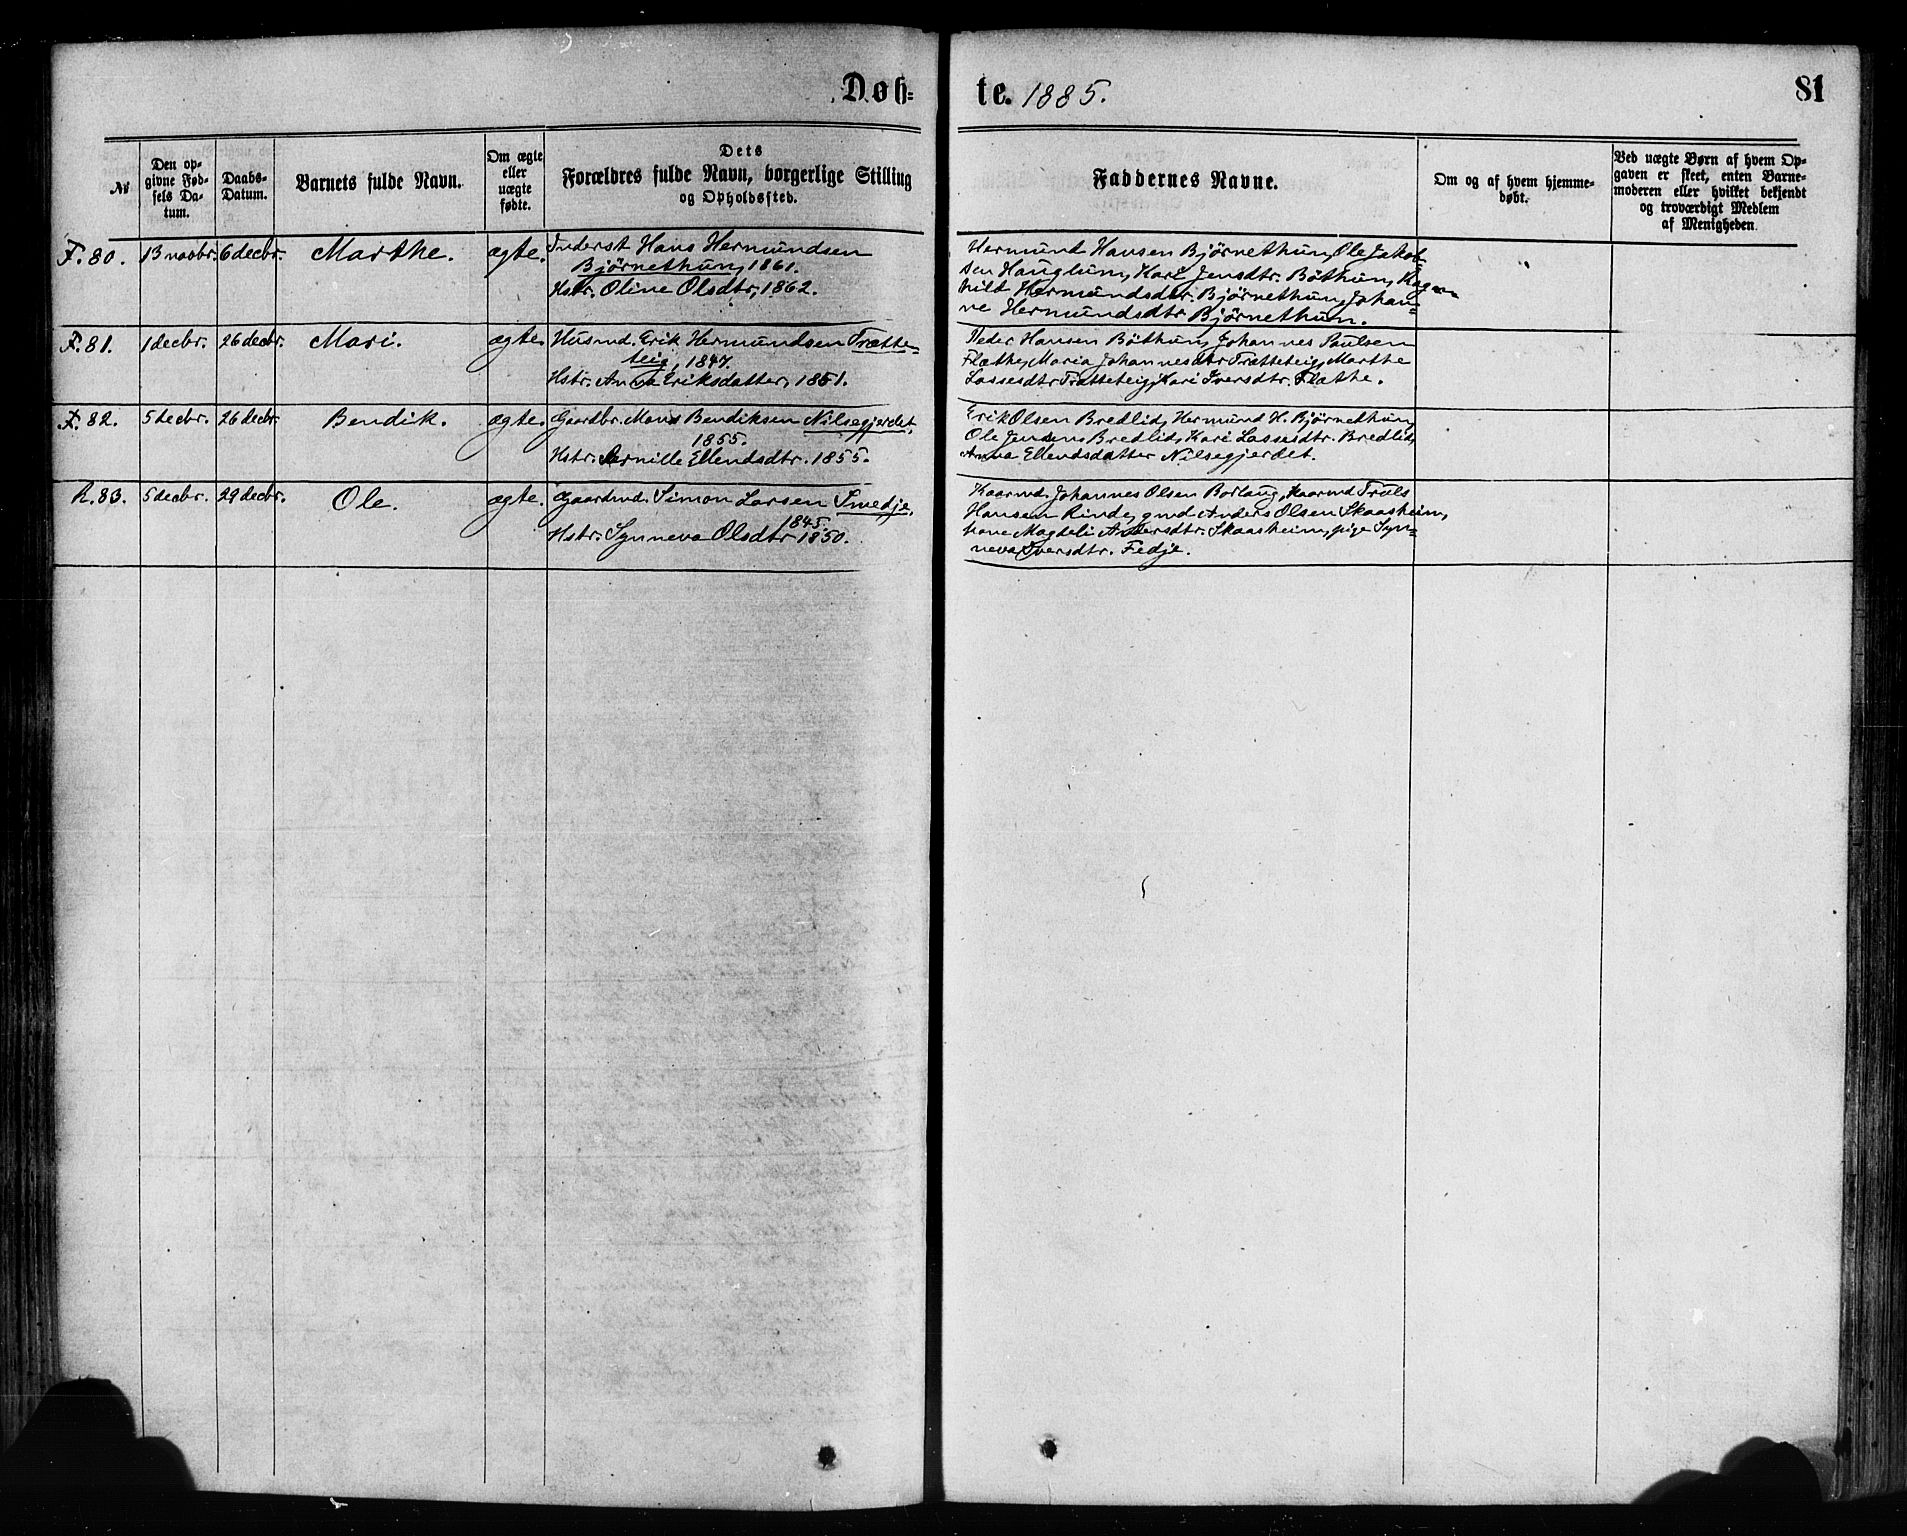 Døb=
te. 1885.
81
№
Den op-
givne Fød-
sels Da-
tum.
Daabs-
Datum.
Barnets fulde Navn.
Om ægte
eller
uægte
fødte.
Dets
Forældres fulde Navn, borgerlige Stilling
og Opholdssted.
Faddernes Navne.
Om og af hvem hjemme-
døbt.
Ved uægte Børn af hvem Op-
gaven er skeet, enten Barne-
moderen eller hvilket bekjendt
og troværdigt Medlem
af Menigheden.
F. 80. 13 novbr. 6 decbr. Marthe. ægte.
Inderst Hans Hermundsen
Bjørnethun, 1861.
Hstr. Oline Olsdtr, 1862.
Hermund Hansen Bjørnethun, Ole Jakob-
sen Hauglum, Kari Jensdtr. Bøthun, Ragn-
hild Hermundsdtr. Bjørnethun, Johan-
ne Hermundsdtr Bjørnethun.
F. 81. 1 decbr. 26 decbr. Mari. ægte.
Husmd. Erik Hermundsen Trætte-
teig, 1847.
Hstr. Anna Eriksdatter, 1851.
Peder Hansen Bøthun, Johannes Paulsen
Flæthe, Maria Johannesdtr Trætteteig, Marthe
Lassesdtr Trætteteig, Kari Iversdtr. Flæthe.
F. 82. 5 decbr. 26 decbr. Bendik. ægte.
Gaardbr. Mons Bendiksen Nilsegjerdet,
1855.
Hstr. Pernille Ellendsdtr. 1855.
Erik Olsen Bredlid, Hermund H. Bjørnethun,
Ole Jensen Bredlid, Kari Lassesdtr. Bredlid,
Anna Ellendsdatter Nilsegjerdet.
R. 83. 5 decbr. 29 decbr. Ole. ægte.
Gaardmd. Simon Larsen Smedje,
1845.
Hstr. Synneva Olsdtr 1850.
Kaarmd. Johannes Olsen Borlaug, Kaarmd Truls
Hansen Rinde, gmd Anders Olsen Skaasheim,
kone Magdeli Andersdtr. Skaasheim, pige Syn-
neva Iversdtr. Fedje.